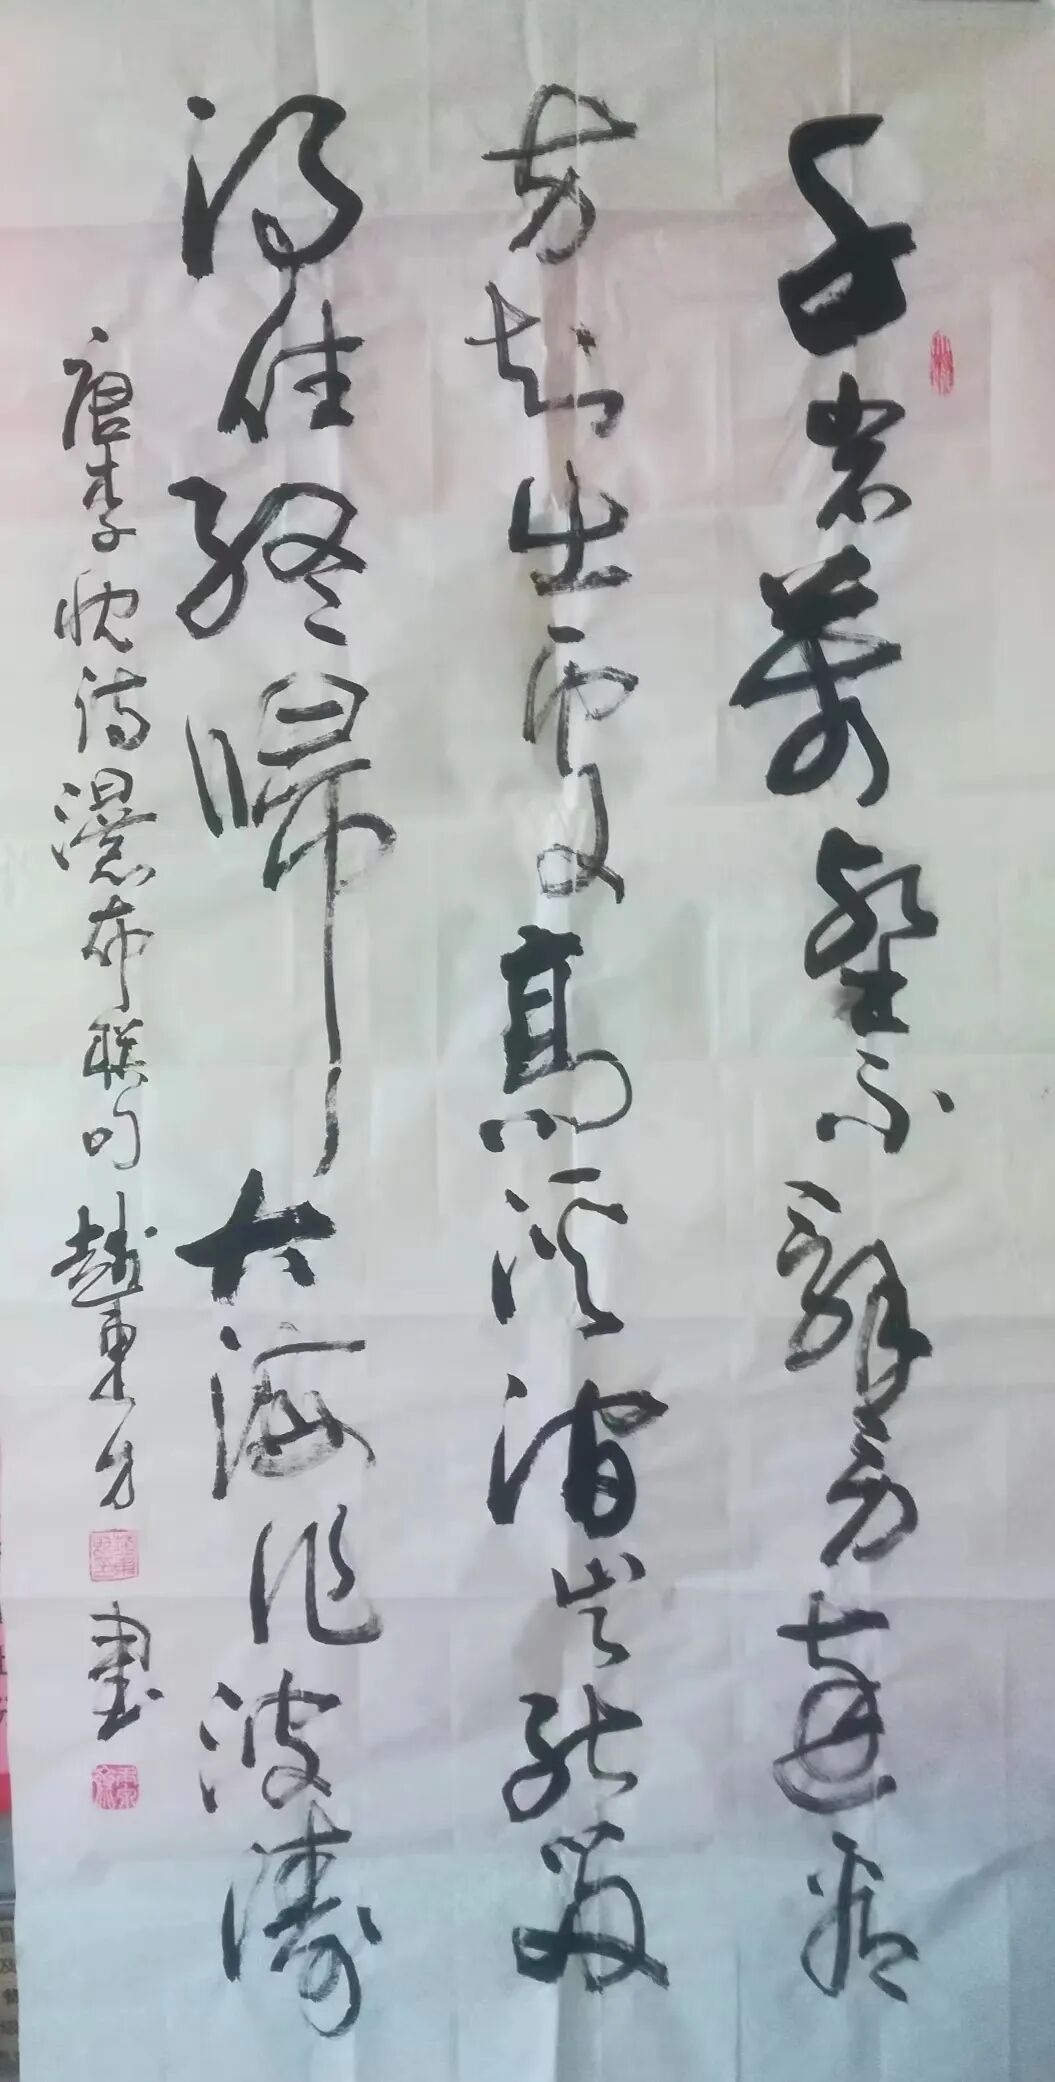 千岩萬壑不辭勞遠看
方知出處高溪澗豈能留
得住終歸大海作波濤
唐李忱詩瀑布聯句趙東方書